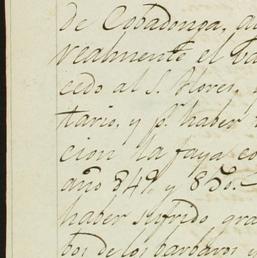 de Cobadonga, a
realmente el ba
cedo al S. Flores,
tario, y p.r haber
cion la faya co
año 849. y 850.
haber sufrido gra
bos de los barbaros y